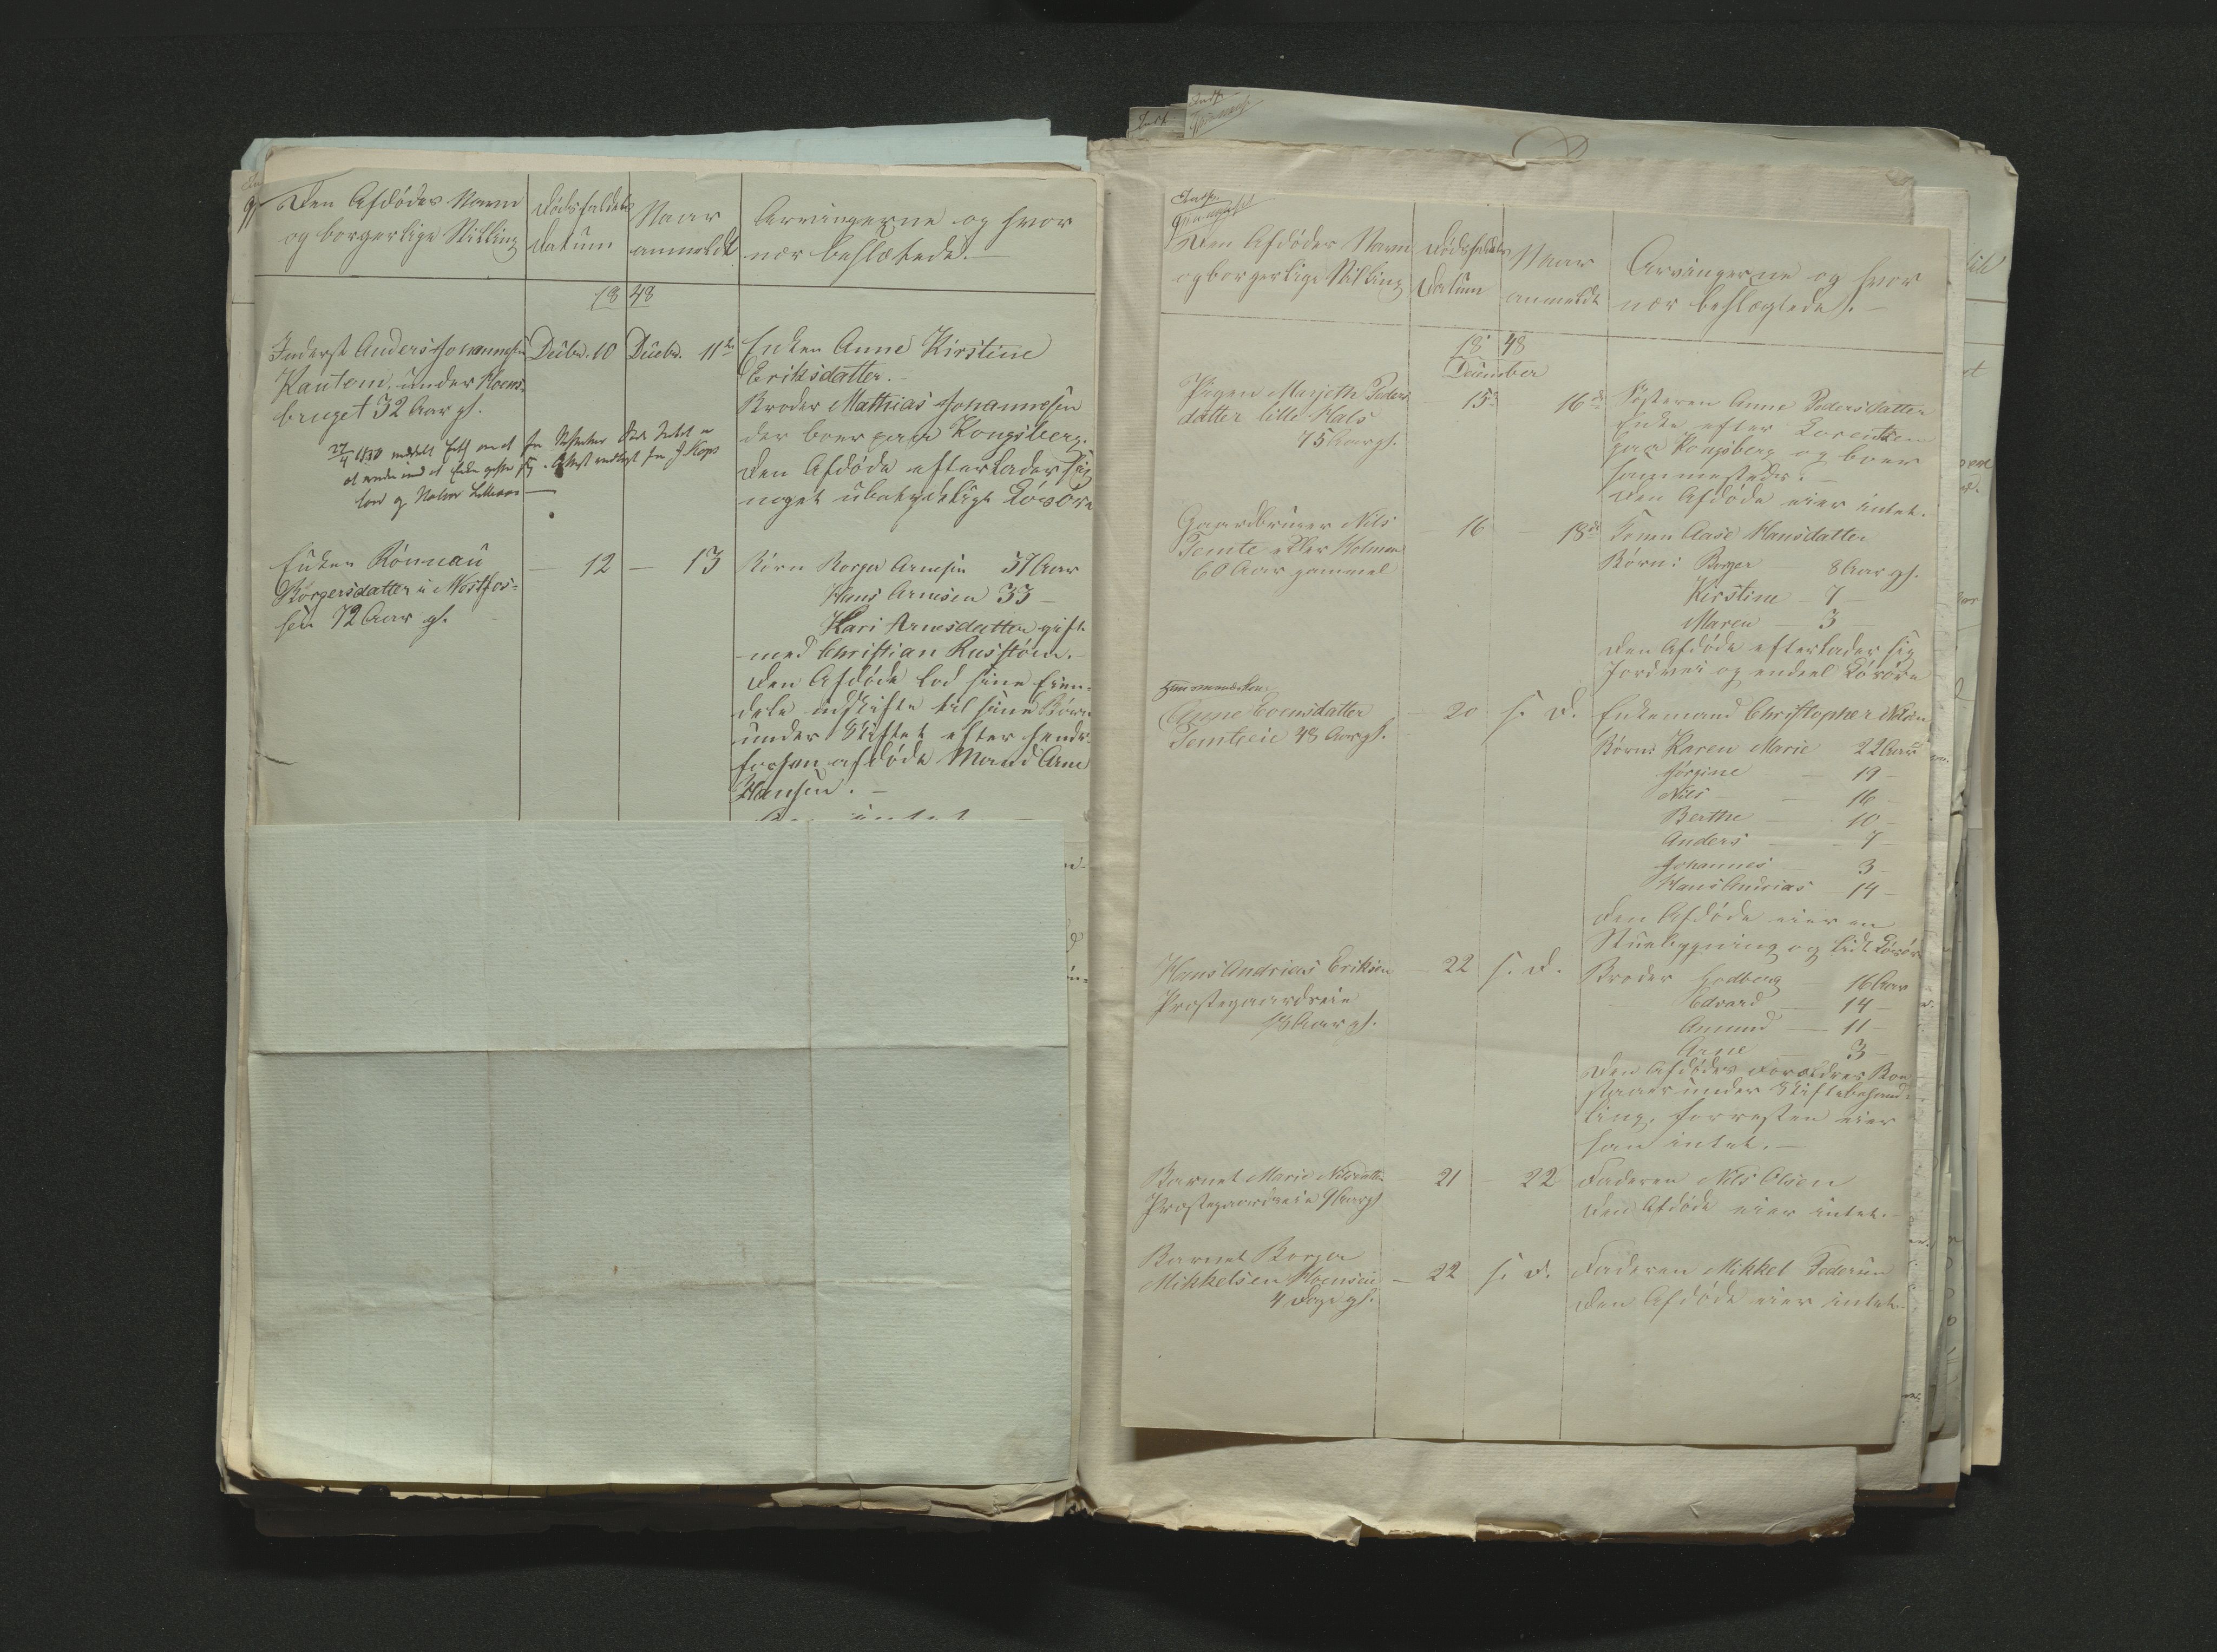 Den Afdødes Navn
og borgerlige Stilling
Dødsfaldets
Datum
Naar
anmeldt
Arvingerne og hvor
nær beslætede.
1848
Inderst Anders Johannesen
Kantom under Hoens-
bruget 32 Aar gl.
Decbr. 10
Decbr. 11te
Enken Anne Kirstine
Eriksdatter.
Broder Mathias Johannesen
der boer paa Kongsberg.
Den Afdøde efterlader sig
noget ubetydeligt Løsøre
Enken Rønnau
Børgersdatter i Vestfos-
sen 72 Aar gl.
— 12
— 13
Børn Borger Arnesen 37 Aar
Hans Arnesen 33 —
Kari Arnesdatter gift
med Christian Russtøen.
Den Afdøde lod sine Eien-
dele udskifte til sine Børn
under Skiftet efter hendes
forhen afdøde Mand Arne
Hansen. —
intet
Den Afdødes Navn
og borgerlige Stilling
Dødsfaldets
Datum
Naar
anmeldt
Arvingerne og hvor
nær beslægtede. —
1848
December
Pigen Marjethe Peders
datter lille Hals
75 Aar gl.
15de
16de
Søsteren Anne Pedersdatter
Enke efter Lorentsen
paa Kongsberg og boer
sammesteds. —
Den Afdøde eier intet.
Gaardbruger Nils
Temte eller Holmen
60 Aar gammel
— 16
— 18de
Konen Aase Hansdatter
Børn: Borger 8 Aar gl.
Kirstine — 7 —
Maren — 3 —
Den Afdøde efterlader sig
Jordvei og endeel Løsøre
Huusmandskone
Anne Coensdatter
Temteeie 48 Aar gl.
— 20
s. D.
Enkemand Christopher Nilsen
Børn: Karen Marie 22 Aar
Jørgine — 19 —
Nils — 16 —
Berthe — 10 —
Anders — 7 —
Johannes 3 —
Hans Andrias — 14 —
Den Afdøde eier en
Stuebygning og lidt Løsøre
Hans Andrias Eriksen
Præstegaardseie
18 Aar gl.
— 22
s. D.
Broder Godberg — 16 Aar
Edvard — 14 —
Amund — 11 —
Arne — 3 —
Den Afdødes Forældres Boe
staaer under Skiftebehand-
ling, forresten eier
han intet. —
Barnet Marie Nilsdatter
Præstegaardseie 9 Aar gl
— 21
— 22
Faderen Nils Olsen
Den Afdøde eier intet. —
Barnet Borger
Mikkelsen Hoenseie
4 Dage gl.
— 22
s. D.
Faderen Mikkel Pedersen
Den Afdøde eier intet